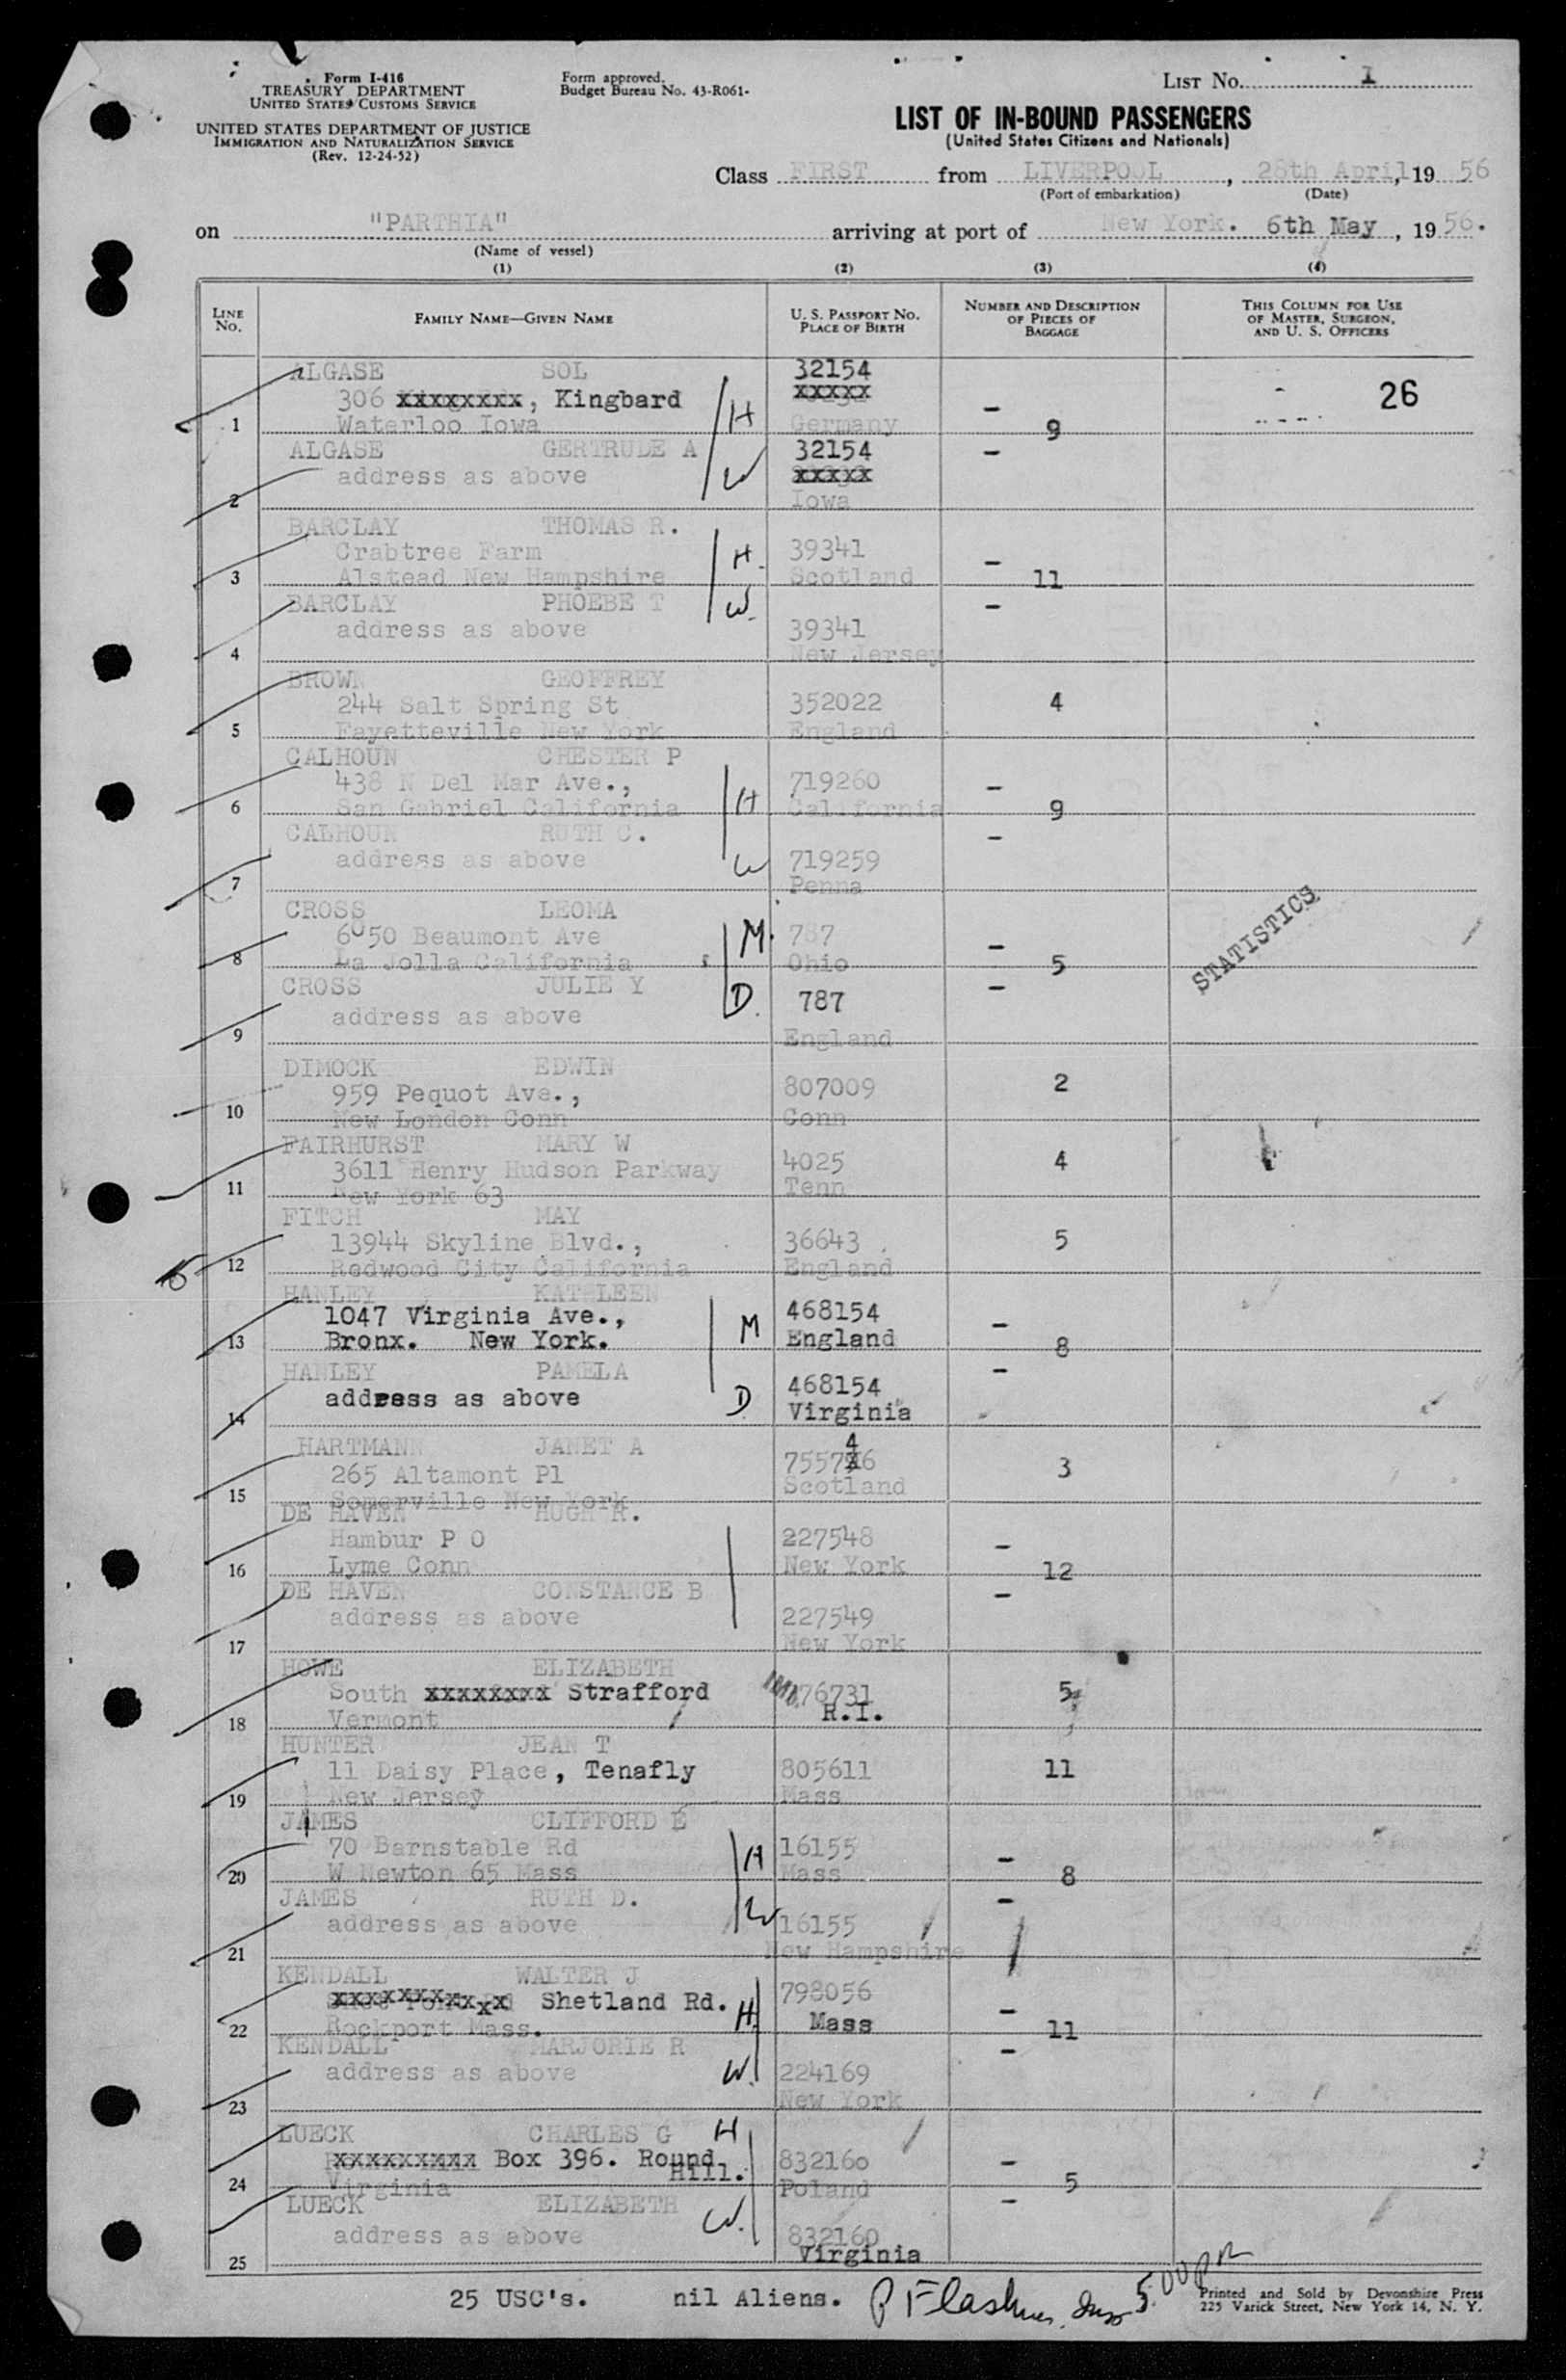 Form I-416
TREASURY DEPARTMENT
UNITED STATES CUSTOMS SERVICE
UNITED STATES DEPARTMENT OF JUSTICE
IMMIGRATION AND NATURALIZATION SERVICE
(Rev. 12-24-52)
Form approved.
Budget Bureau No. 43-R061-
LIST No. 1
LIST OF IN-BOUND PASSENGERS
(United States Citizens and Nationals)
Class FIRST from LIVERPOOL, 28th April, 19 56
(Port of embarkation) (Date)
on "PARTHIA" arriving at port of New York. 6th May, 19 56.
(Name of vessel)
(1) (2) (3) (4)
LINE No. FAMILY NAME—GIVEN NAME U. S. PASSPORT NO. PLACE OF BIRTH NUMBER AND DESCRIPTION OF PIECES OF BAGGAGE THIS COLUMN FOR USE OF MASTER, SURGEON, AND U. S. OFFICERS
ALGASE SOL 32154
306 xxxxxxxx, Kingbard H xxxxx 26
1 Waterloo Iowa Germany - 9
ALGASE GERTRUDE A 32154 -
address as above W xxxxx
2 Iowa
BARCLAY THOMAS R.
Crabtree Farm H. 39341 -
3 Alstead New Hampshire Scotland 11
BARCLAY PHOEBE T W. -
address as above 39341
4 New Jersey
BROWN GEOFFREY
244 Salt Spring St 352022 4
5 Fayetteville New York England
CALHOUN CHESTER P
438 N Del Mar Ave., 719260 -
6 San Gabriel California H California 9
CALHOUN RUTH C. -
address as above W 719259
7 Penna
CROSS LEOMA
6050 Beaumont Ave M. 787 -
8 La Jolla California Ohio 5
STATISTICS
CROSS JULIE Y D. 787 -
address as above
9 England
DIMOCK EDWIN
959 Pequot Ave., 807009 2
10 New London Conn Conn
FAIRHURST MARY W
3611 Henry Hudson Parkway 4025 4
11 New York 63 Tenn
FITCH MAY
13944 Skyline Blvd., 36643 5
12 Redwood City California England
HANLEY KATHLEEN
1047 Virginia Ave., 468154 -
13 Bronx. New York. M England 8
HANLEY PAMELA -
address as above D 468154
14 Virginia
HARTMANN JANET A 4
265 Altamont Pl 7557x6 3
15 Somerville New York Scotland
DE HAVEN HUGH R.
Hambur P O 227548 -
16 Lyme Conn New York 12
DE HAVEN CONSTANCE B -
address as above 227549
17 New York
HOWE ELIZABETH
South xxxxxxxx Strafford 76731 5
18 Vermont R.I.
HUNTER JEAN T
11 Daisy Place, Tenafly 805611 11
19 New Jersey Mass
JAMES CLIFFORD E
70 Barnstable Rd H 16155 -
20 W Newton 65 Mass Mass 8
JAMES RUTH D. W -
address as above 16155
21 New Hampshire
KENDALL WALTER J 798056
xxxxxxxxxxx Shetland Rd. H. Mass -
22 Rockport Mass. 11
KENDALL MARJORIE R -
address as above W. 224169
23 New York
LUECK CHARLES G H
xxxxxxxxx Box 396. Round Hill. 832160 -
24 Virginia Poland 5
LUECK ELIZABETH W. -
address as above 832160
25 Virginia
25 USC's. nil Aliens. 5:00 pm
Printed and Sold by Devonshire Press
225 Varick Street, New York 14, N. Y.